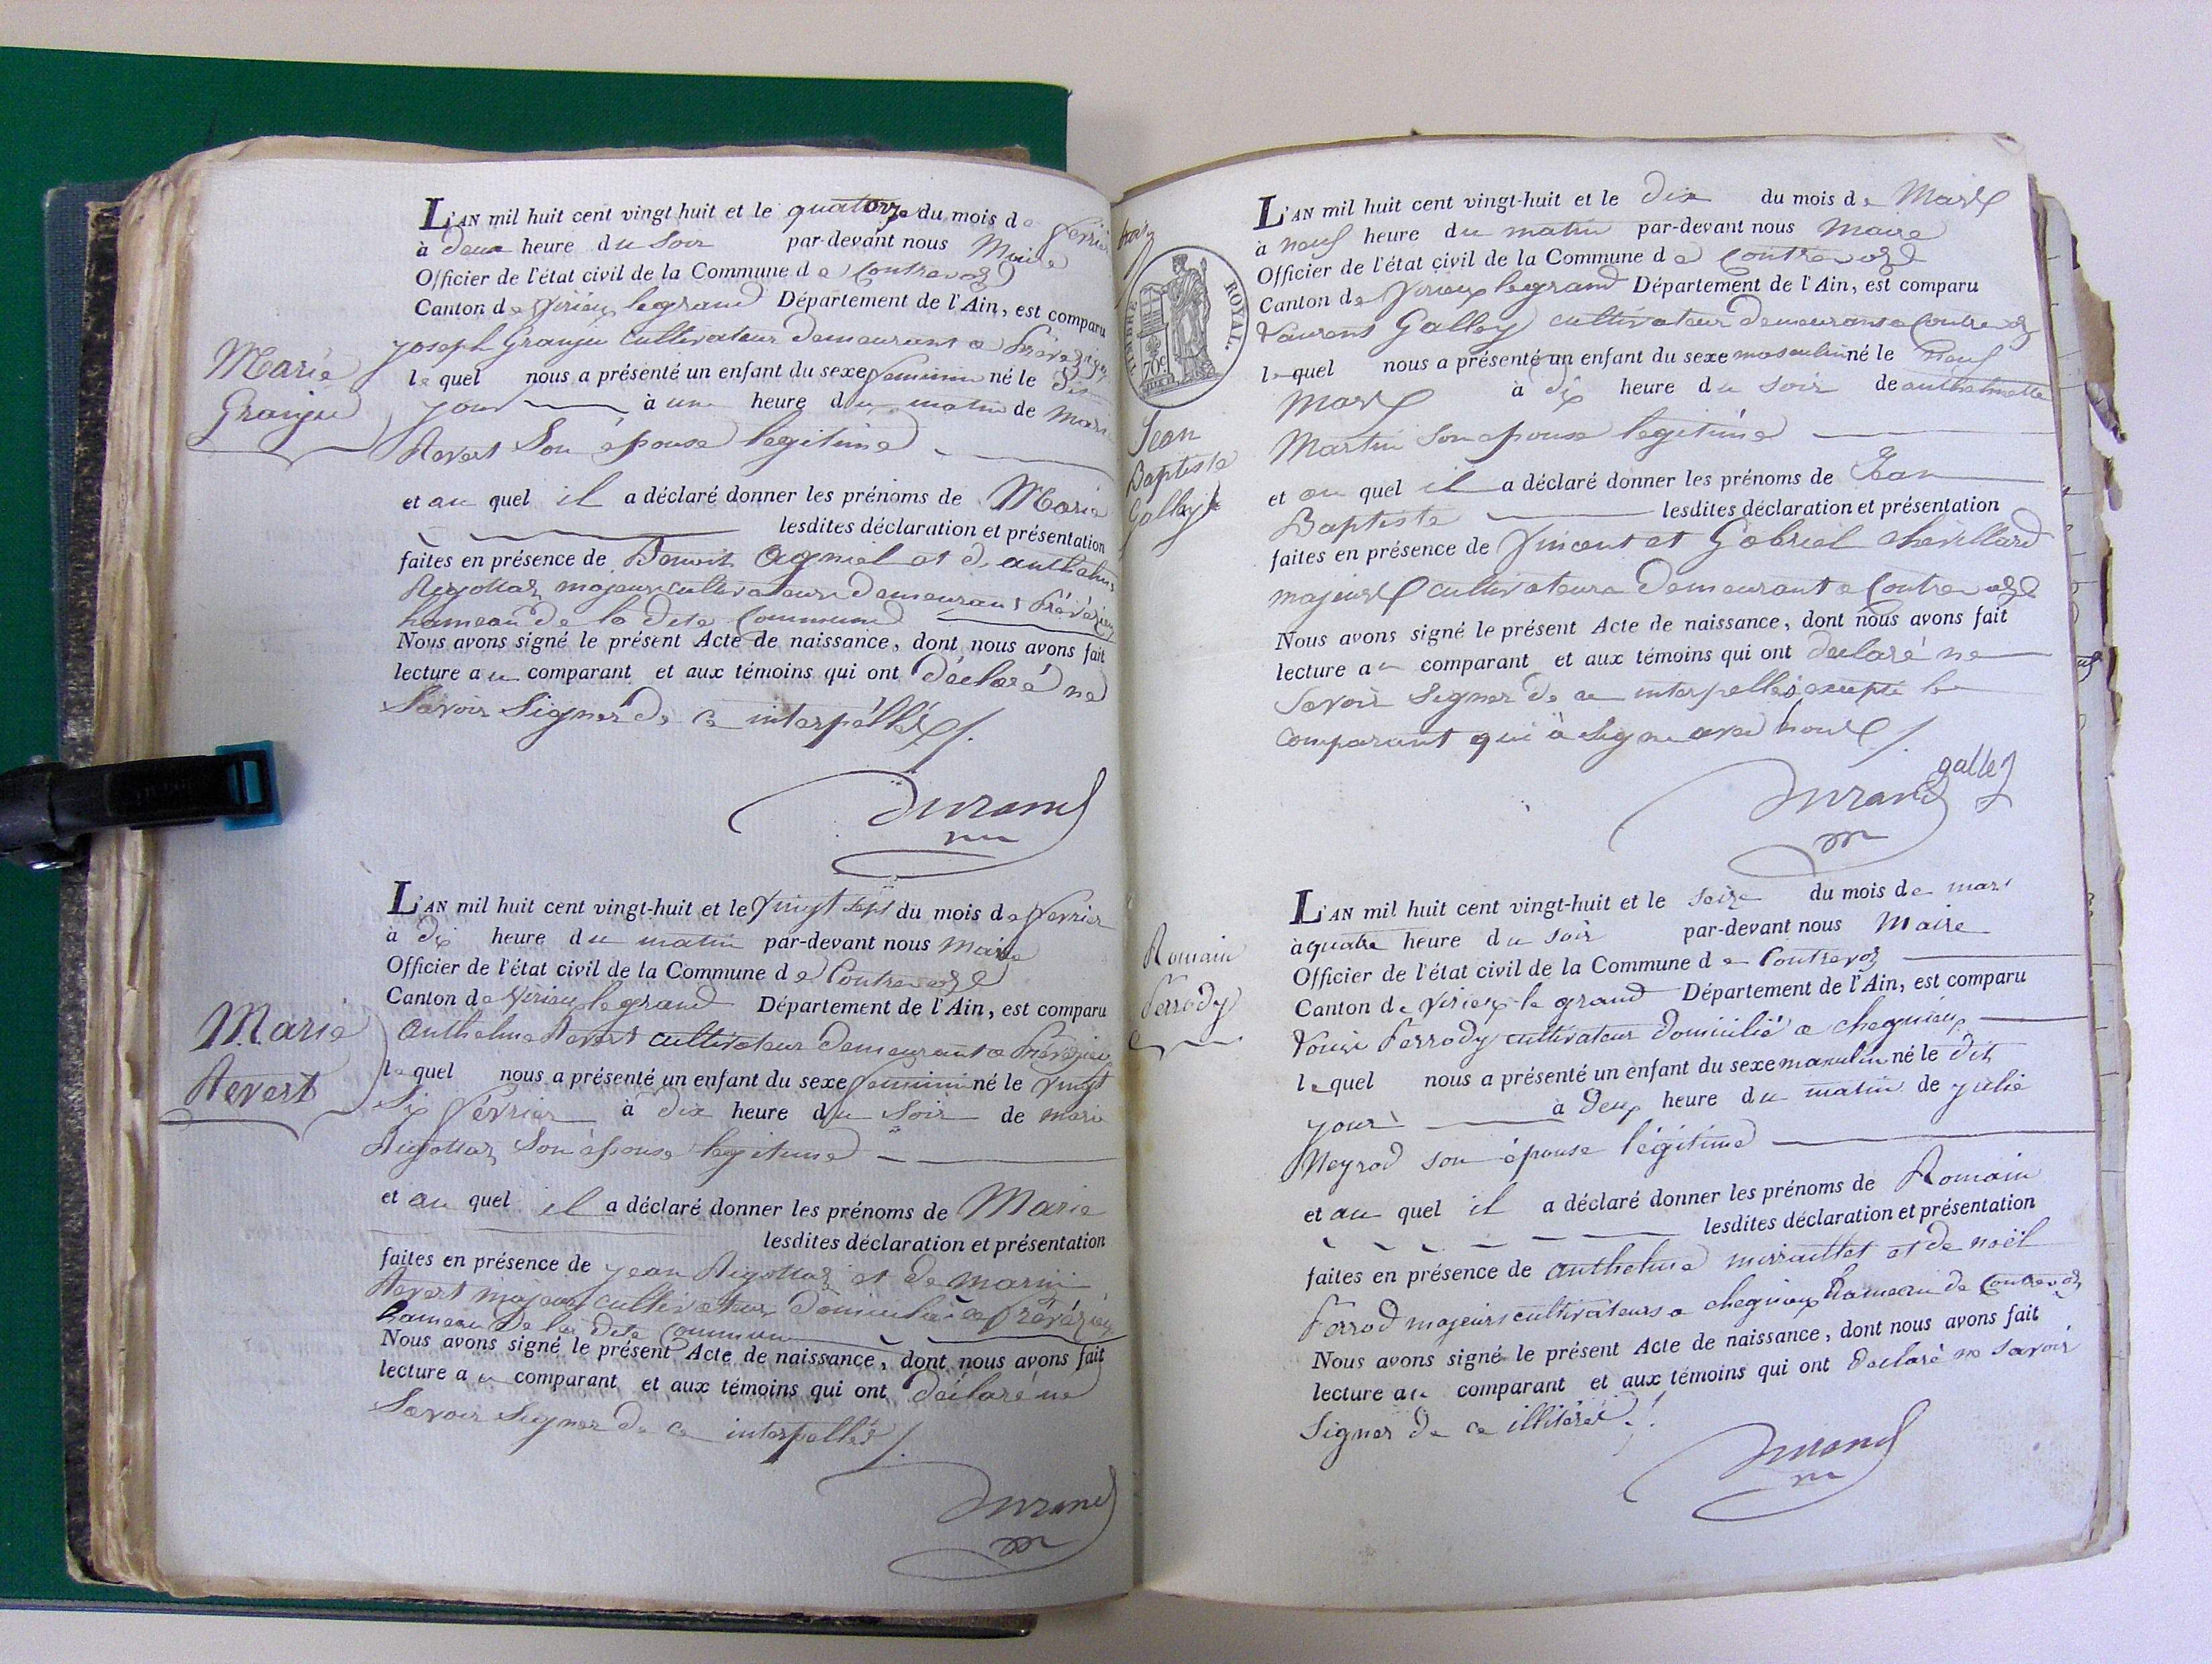 L'AN mil huit cent vingt-huit et le quatorze du mois de fevrier
à deux heure du Soir par-devant nous Maire
Officier de l'état civil de la Commune de Contrevoz
Canton de Virieu legrand Département de l'Ain, est comparu
joseph Granju cultivateur demeurant a
Marie
Granju
lequel nous a présenté un enfant du sexe feminin né le dit
jour à une heure du matin de Marie
Revert Son épouse legitime
et au quel il a déclaré donner les prénoms de Marie
lesdites déclaration et présentation
faites en présence de Benoit Agniel et d'anthelme
Rigottaz majeurs cultivateurs demeurant Prévézieu
hameau de la dite Commune
Nous avons signé le présent Acte de naissance, dont nous avons fait
lecture au comparant et aux témoins qui ont déclaré ne
Savoir Signer de ce interpéllés /.
Durand
L'AN mil huit cent vingt-huit et le vingt sept du mois de fevrier
à dix heure du matin par-devant nous Maire
Officier de l'état civil de la Commune de Contrevoz
Canton de Virieu legrand Département de l'Ain, est comparu
anthelme Revert cultivateur demeurant a Prévézieu
Marie
Revert
lequel nous a présenté un enfant du sexe feminin né le vingt
Six février à dix heure du Soir de marie
Rigottaz Son épouse legitime
et au quel il a déclaré donner les prénoms de Marie
lesdites déclaration et présentation
faites en présence de jean Rigottaz et de marin
Revert majeurs cultivateurs domiciliés a Prévézieu
hameau de la dite Commune
Nous avons signé le présent Acte de naissance, dont nous avons fait
lecture au comparant et aux témoins qui ont déclaré ne
Savoir Signer de ce interpellés /.
Durand
TIMBRE ROYAL.
70c.
L'AN mil huit cent vingt-huit et le dix du mois de Mars
à neuf heure du matin par-devant nous maire
Officier de l'état civil de la Commune de Contrevoz
Canton de Virieux legrand Département de l'Ain, est comparu
Laurent Galley cultivateur demeurant a Contrevoz
lequel nous a présenté un enfant du sexe masculin né le neuf
Mars à dix heure du soir de anthelmette
Martin son epouse legitime
Jean
Baptiste
Galley
et au quel il a déclaré donner les prénoms de Jean
Baptiste lesdites déclaration et présentation
faites en présence de Vincent et Gabriel chevillard
majeurs cultivateurs demeurant a Contrevoz
Nous avons signé le présent Acte de naissance, dont nous avons fait
lecture au comparant et aux témoins qui ont declaré ne
Savoir Signer de ce interpellés excepté le
Comparant qui à Signe avec nous /.
galley
Durand
L'AN mil huit cent vingt-huit et le seize du mois de mars
à quatre heure du soir par-devant nous Maire
Officier de l'état civil de la Commune de Contrevoz
Canton de Virieux le grand Département de l'Ain, est comparu
Louis Ferrody cultivateur domicilié a chegnieux
Romain
Ferrody
lequel nous a présenté un enfant du sexe masculin né le dit
jour à deux heure du matin de julie
Meyrod son épouse légitime
et au quel il a déclaré donner les prénoms de Romain
lesdites déclaration et présentation
faites en présence de anthelme miraillet et de noël
Ferrod majeurs cultivateurs a chegnieux hameau de Contrevoz
Nous avons signé le présent Acte de naissance, dont nous avons fait
lecture au comparant et aux témoins qui ont declaré ne savoir
Signer de ce illitérés /.
Durand